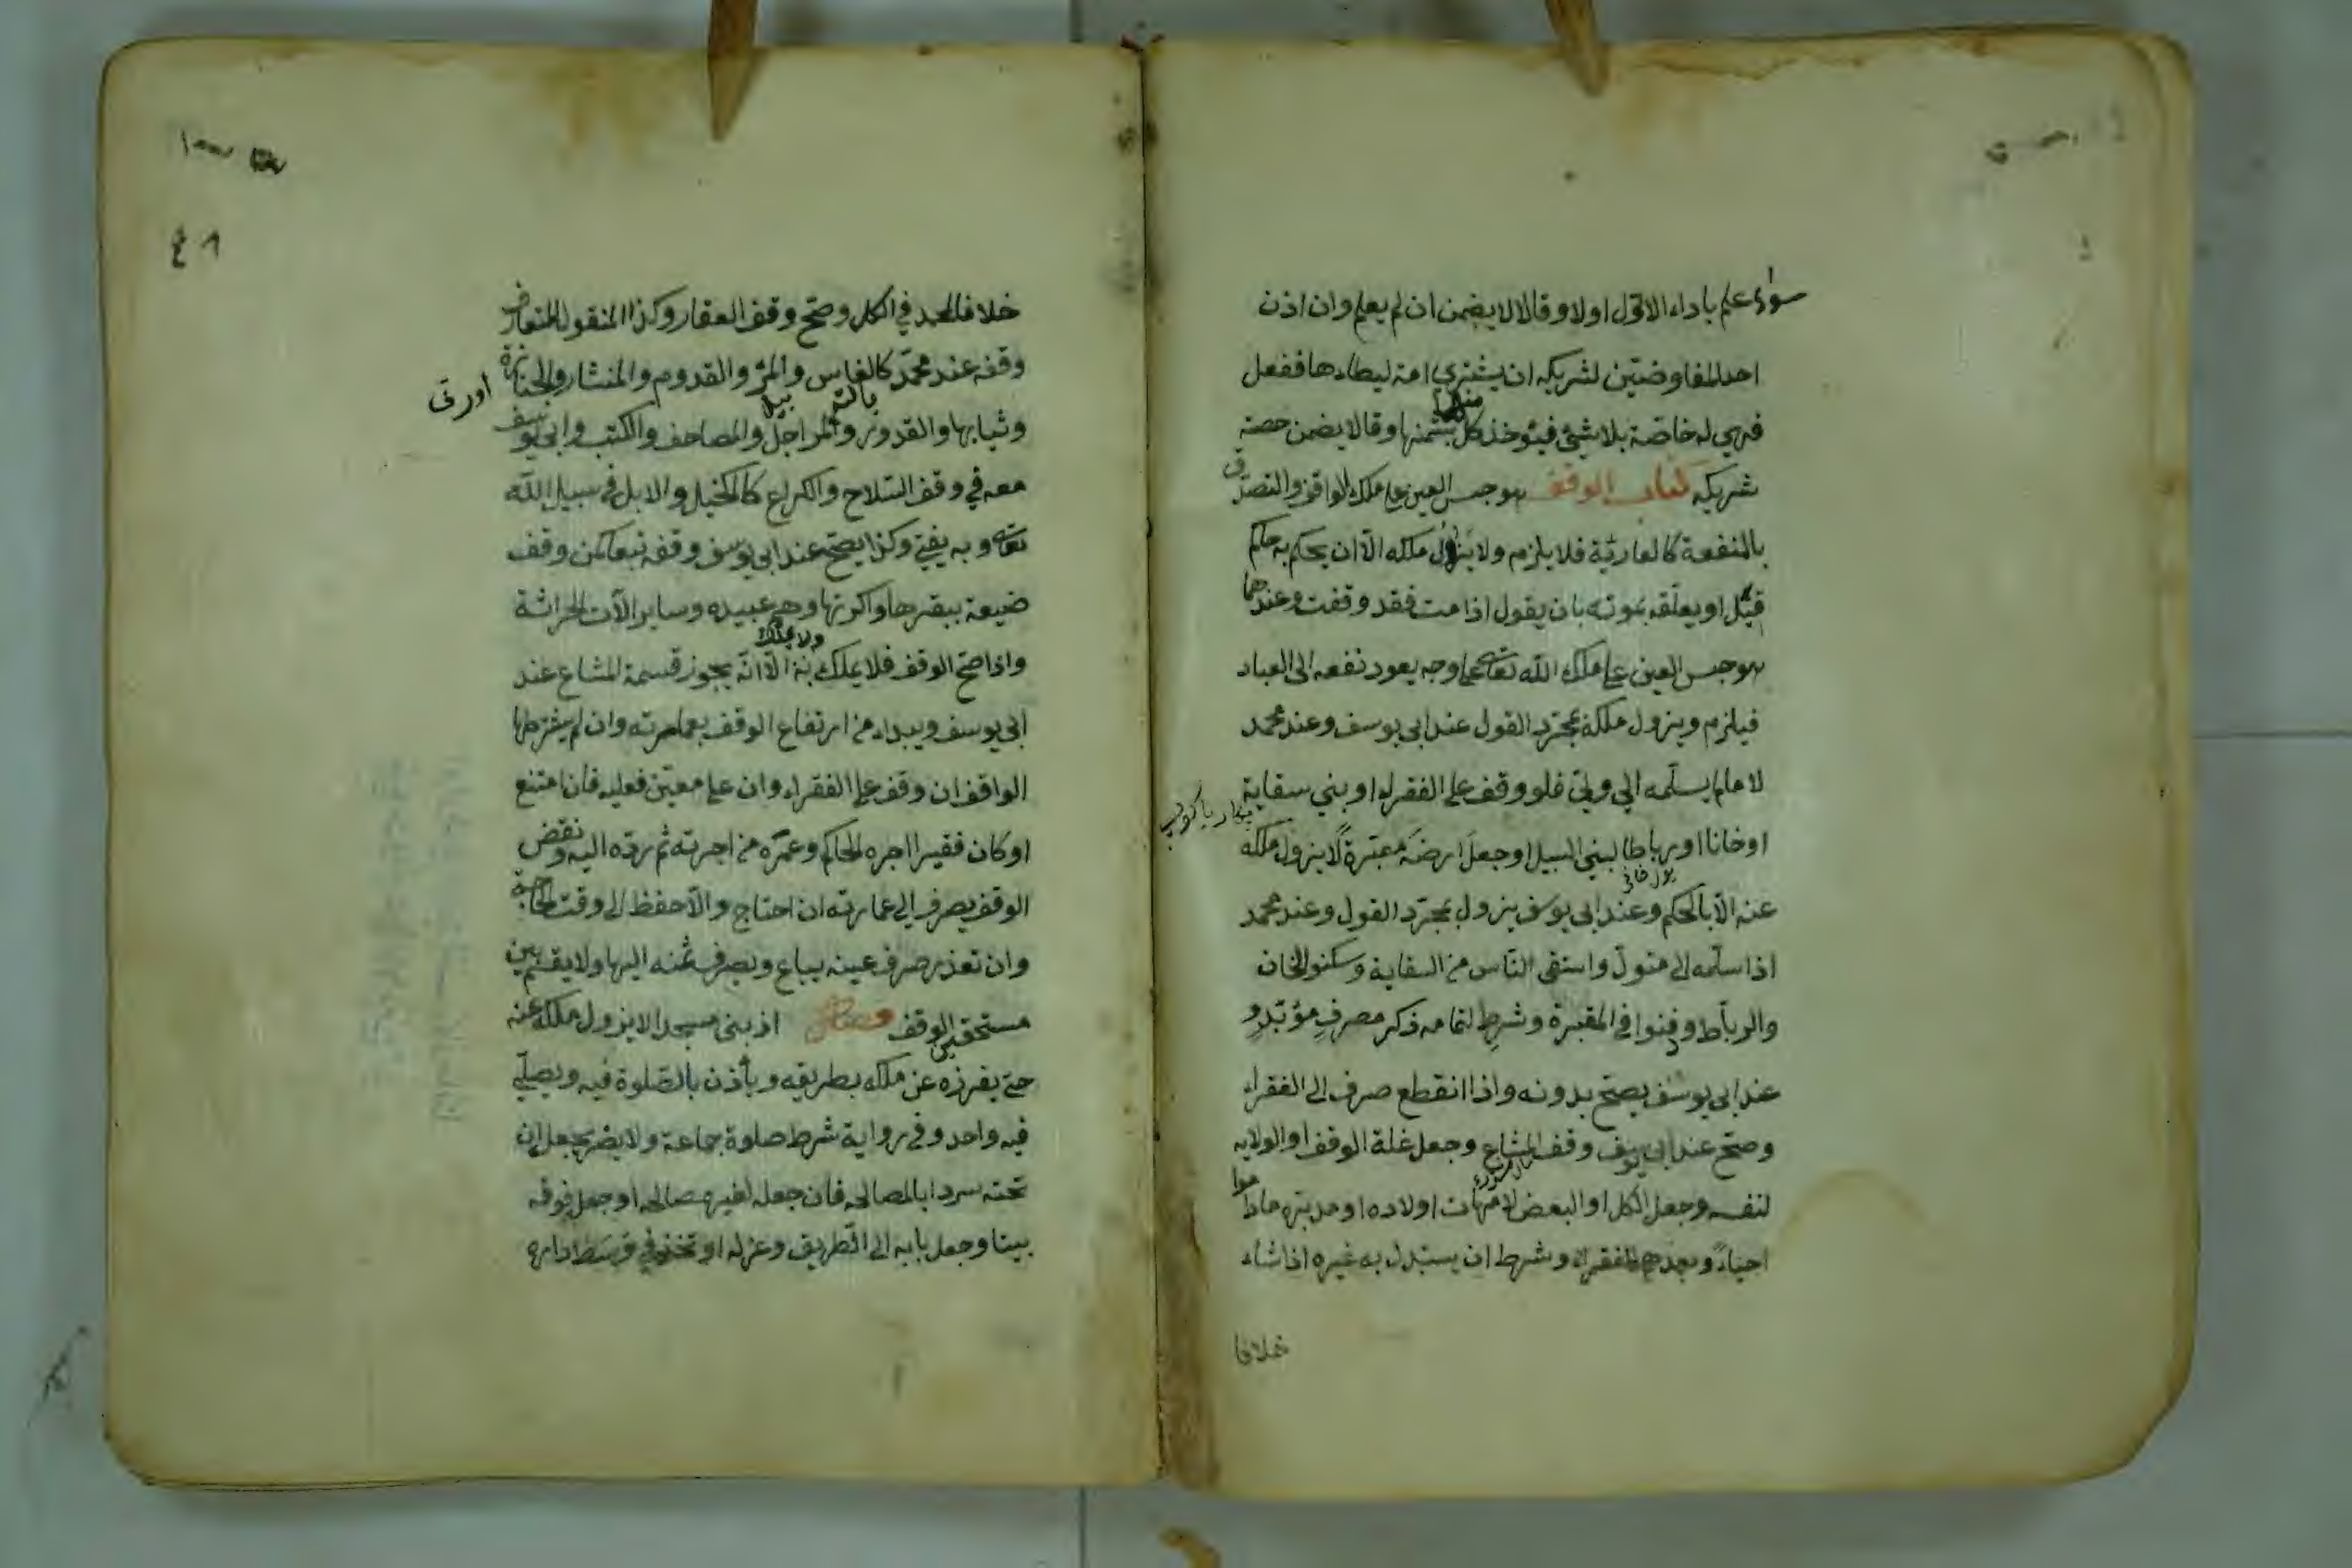 سواء علم باداء الاول اولا وقالا لا يضمن ان لم يعلم وان اذن
احد المفاوضين لشريكه ان يشتري امة ليطاءها ففعل
فهي له خاصة بلا شئ فيؤخذ كل بثمنها وقالا يضمن حصة
شريكه كتاب الوقف هو حبس العين على ملك الواقف والتصدق
بالمنفعة كالعارية فلا يلزم ولا يزول ملكه الا ان يحكم به حاكم
قيل او يعلقه بموته بان يقول اذا مت فقد وقفت وعندهما
هو حبس العين على ملك الله تعالى على وجه يعود نفعه الى العباد
فيلزم ويزول ملكه بمجرد القول عند ابي يوسف وعند محمد
لا ما لم يسلمه الي ولي فلو وقف على الفقراء او بني سقاية
او خانا او رباطا لبني السبيل او جعل ارضه مقبرة لا يزول ملكه
عنه الا بالحكم وعند ابي يوسف يزول بمجرد القول وعند محمد
اذا سلمه الى متول واستقى الناس من السقاية وسكنوا الخان
والرباط ودفنوا في المقبرة وشرط لتمامه ذكر مصرف مؤبد و
عند ابي يوسف يصح بدونه واذا انقطع صرف الى الفقراء
وصح عند ابي يوسف وقف المشاع وجعل غلة الوقف او الولاية
لنفسه وجعل الكل او البعض لامهات اولاده او مدبريه ماداموا
احياء وبعدهم للفقراء وشرط ان يستبدل به غيره اذا شاء
خلافا
٤٨
خلافا لمحمد في الكل وصح وقف العقار وكذا المنقول المتعارف
وقفه عند محمد كالفاس والمر والقدوم والمنشار والجنازة
وثيابها والقدور والمراجل والمصاحف والكتب وابي يوسف
معه في وقف السلاح والكراع كالخيل والابل في سبيل الله
تعالى وبه يفتي وكذا يصح عند ابي يوسف وقفه تبعا كمن وقف
ضيعة ببقرها واكرتها وهم عبيده وساير الآت الحراثة
واذا صح الوقف فلا يملك ولا يملك الا انه يجوز قسمة المشاع عند
ابي يوسف ويبداء من ارتفاع الوقف بعمارته وان لم يشترطها
الواقف ان وقف على الفقراء وان على معين فعليه فان امتنع
او كان فقيرا اجره الحاكم وعمره من اجرته ثم رده اليه ونقض
الوقف يصرف الي عمارته ان احتاج والا حفظ الى وقت الحاجة
وان تعذر صرف عينه يباع ويصرف ثمنه اليها ولا يقسم بين
مستحقي الوقف فصل اذ بنى مسجدا لا يزول ملكه عنه
حتى يفرزه عن ملكه بطريقه ويأذن بالصلوة فيه ويصلي
فيه واحد وفي رواية شرط صلوة جماعة ولا يضر جعل ان
تحته سردابا لمصالحه فان جعله لغير مصالحه او جعل فوقه
بيتا وجعل بابه الى الطريق وعزله او تخذ في وسط داره